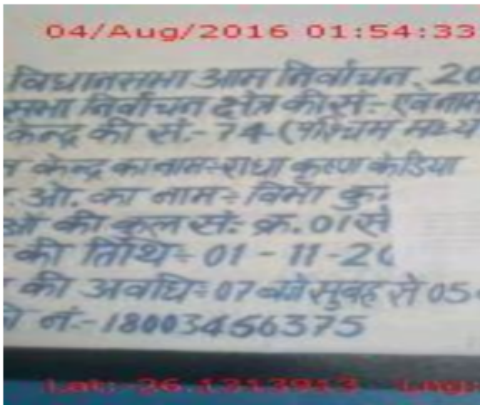 04/Aug/2016 01:54:33
विधानसभा आम निर्वाचन, 20
सभा निर्वाचन क्षेत्र की सं:- एवं नाम
केन्द्र की सं.- 74 (पश्चिम मध्य
केन्द्र का नाम:- राधा कृष्ण केडिया
ओ. का नाम:- विभा कु:
ओ की कुल सं: क्र. 01 से
की तिथि:- 01-11-20
की अवधि:- 07 बजे सुबह से 05
नं.-18003456375
Lat:-26.1213913 Lng: